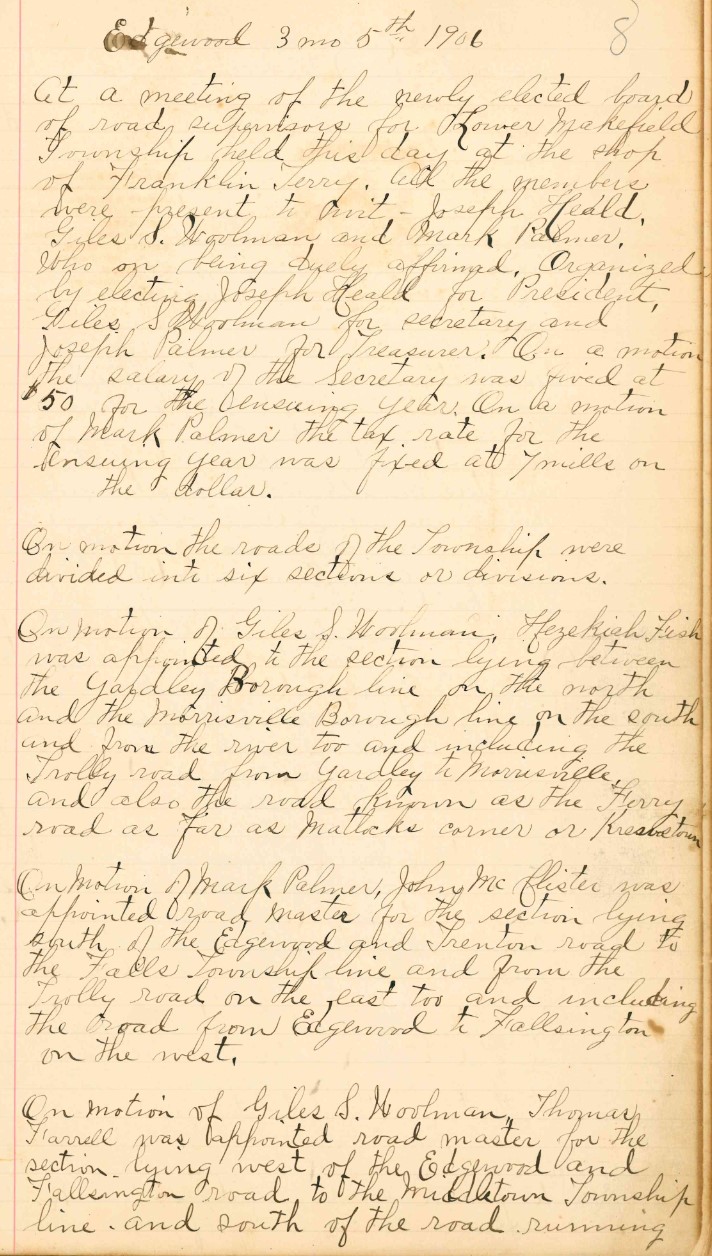 Edgewood 3 mo 5th 1906 8
At a meeting of the newly elected board
of road supervisors for Lower Makefield
Township held this day at the shop
of Franklin Terry. All the members
were present to wit - Joseph Heald,
Giles S. Woolman and Mark Palmer,
Who on being duely affirmed, Organized
by electing Joseph Heald for President,
Giles S Woolman for secretary and
Joseph Palmer for Treasurer. On a motion
the salary of the Secretary was fixed at
$50 for the ensuing year. On a motion
of Mark Palmer the tax rate for the
ensuing year was fixed att 7 mills on
the dollar.
On motion the roads of the Township were
divided into six sections or divisions.
On motion of Giles S. Woolman, Hezekiah Fish
was appointed to the section lying between
the Yardley Borough line on the north
and the Morrisville Borough line on the south
and from the river too and including the
Trolly road from Yardley to Morrisville,
and also the road known as the Ferry
road as far as Matlocks corner or
On Motion of Mark Palmer, John Mc Clister was
appointed road master for the section lying
south of the Edgewood and Trenton road to
the Falls Township line and from the
Trolly road on the east too and including
the road from Edgewood to Fallsington
on the west.
On motion of Giles S. Woolman, Thomas
Farrell was appointed road master for the
section lying west of the Edgewood and
Fallsington road to the Middletown Township
line and south of the road running